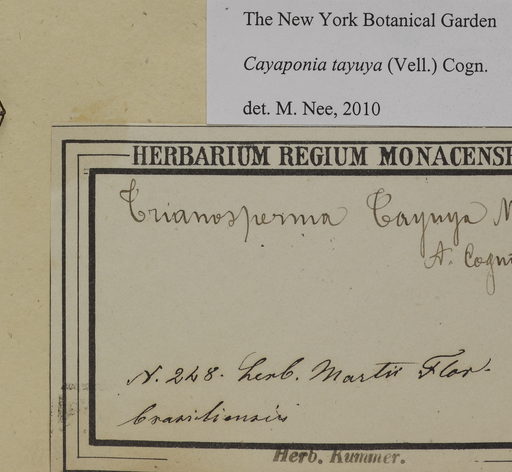 The New York Botanical Garden
Cayaponia tayuya (Vell.) Cogn.
det. M. Nee, 2010
HERBARIUM REGIUM MONACENS
Trianosperma Tayuya M
A. Cogn
N. 248. herb. Martii Flor.
brasiliensis
Herb. Kummer.